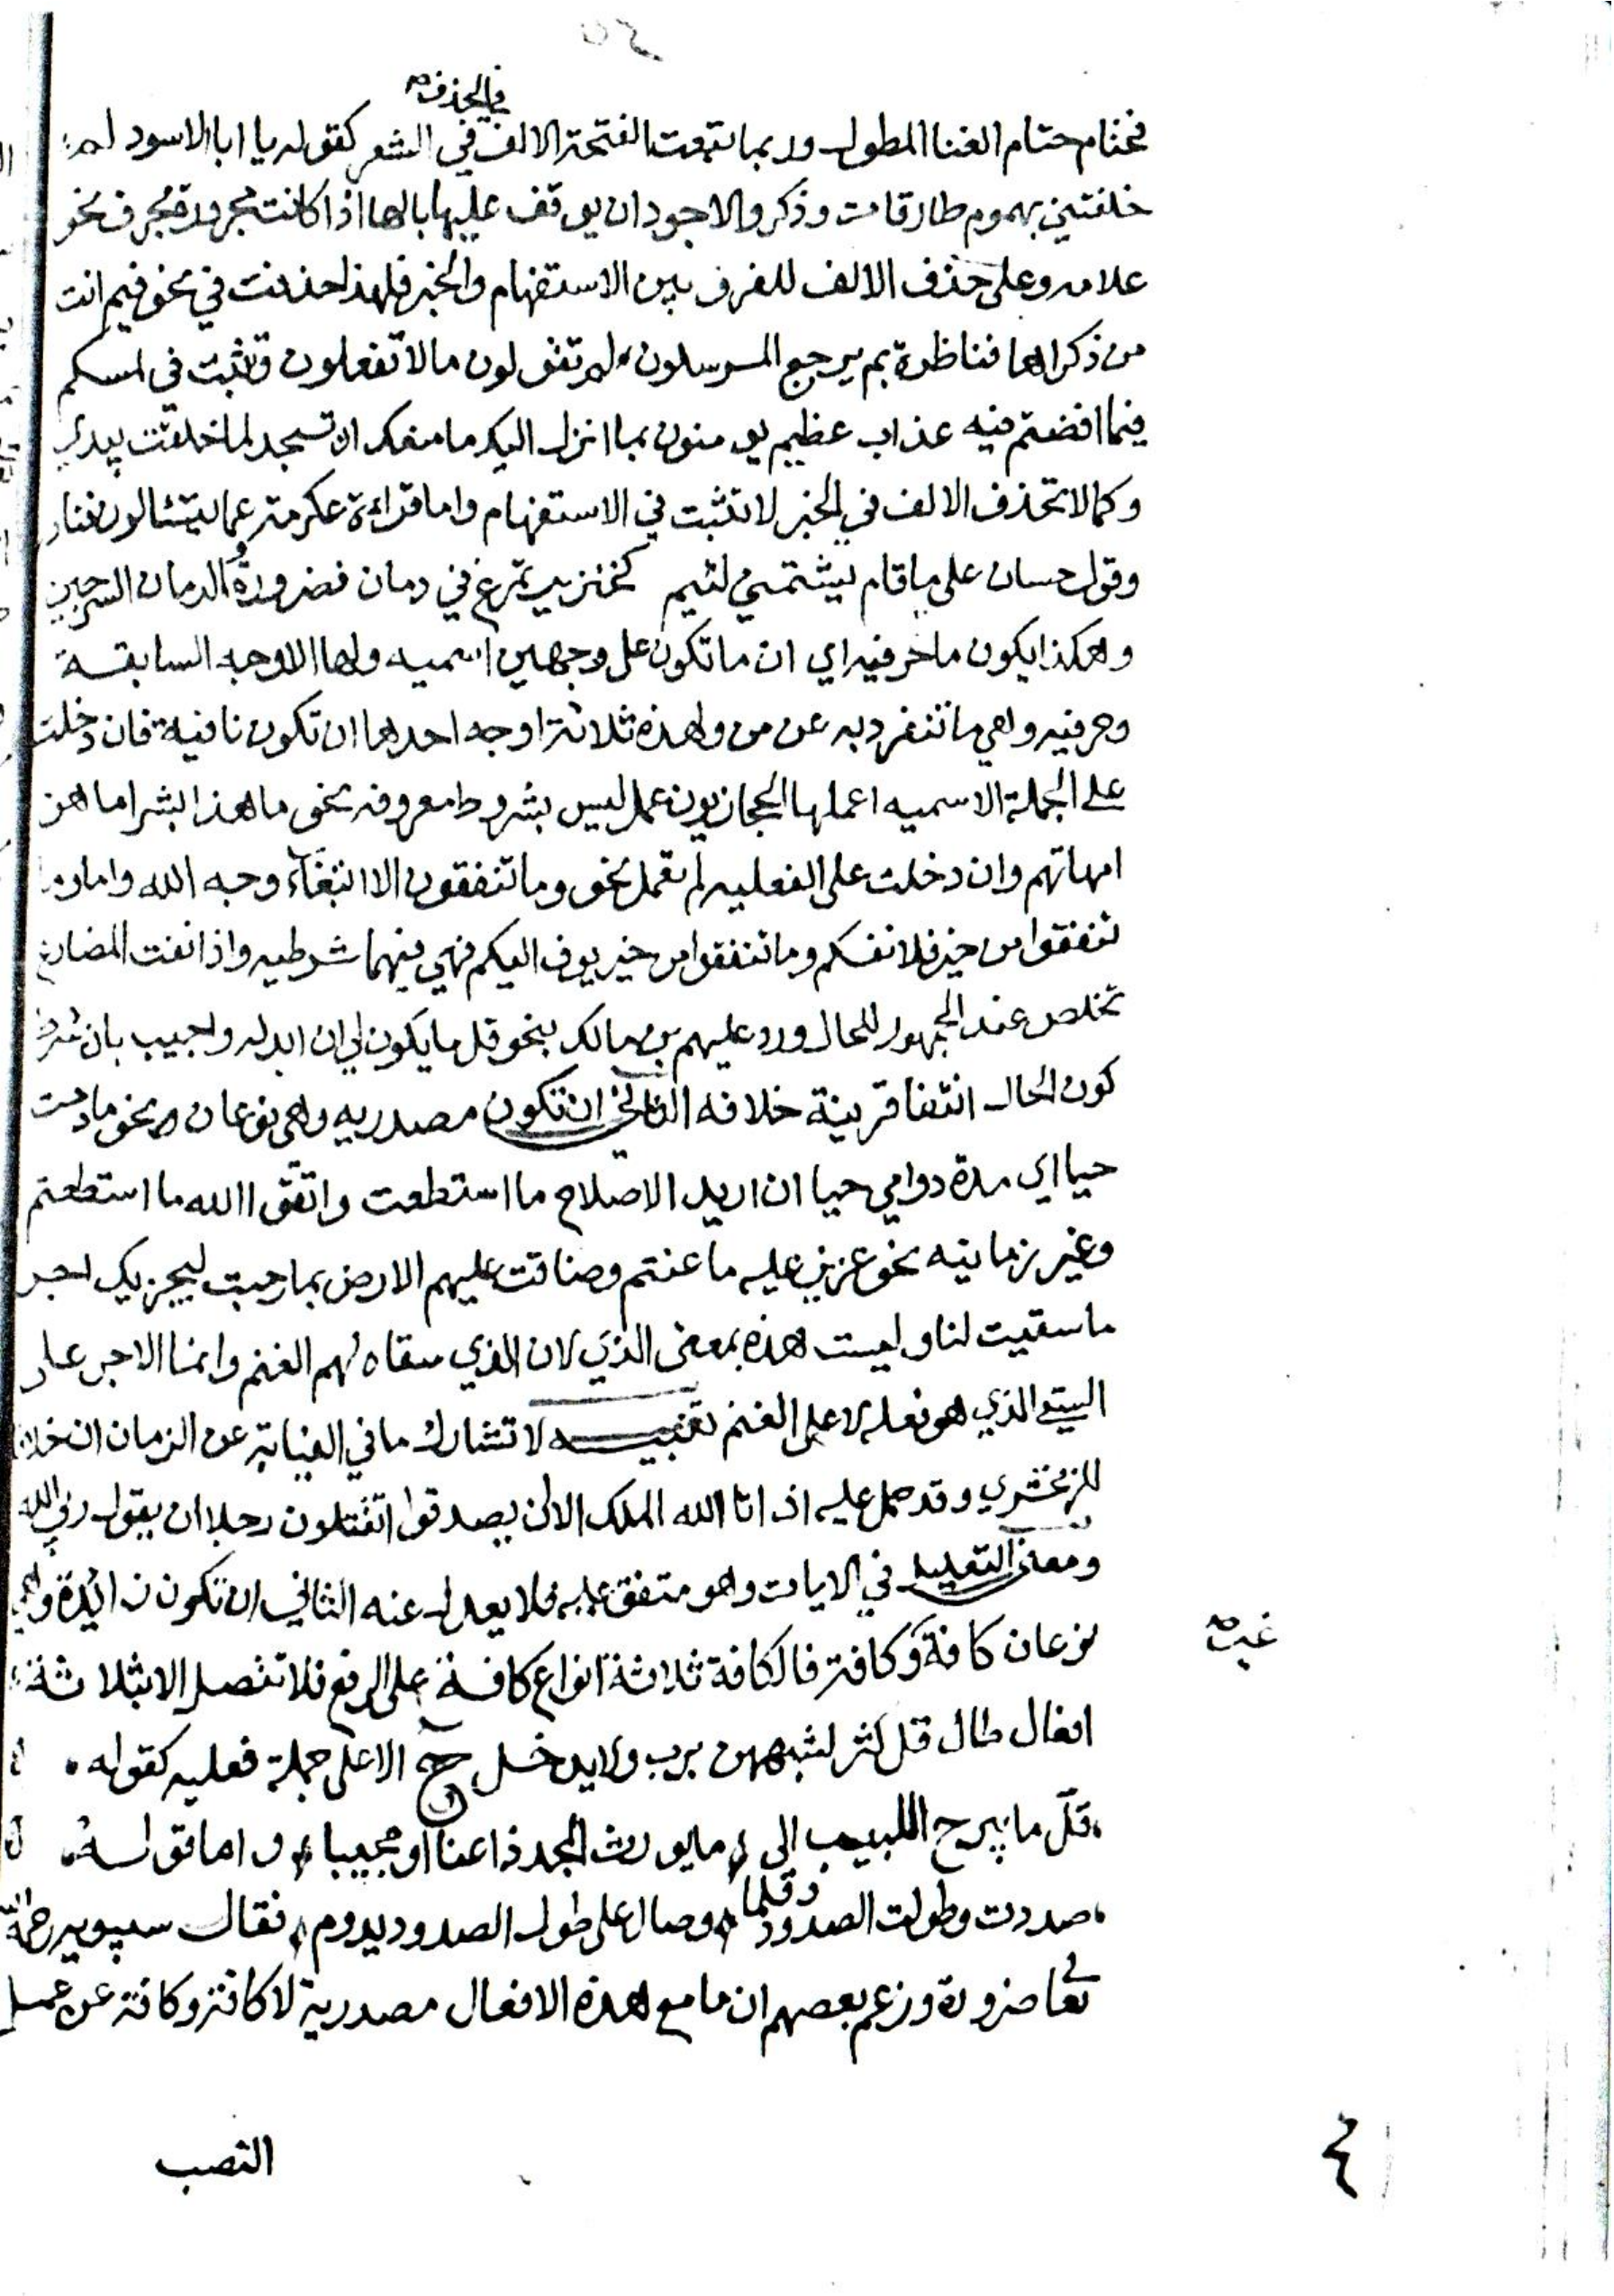 في الحذف صح
فحتام حتام العنا المطول وربما تبعت الفتحة الالف في الشعر كقوله يا ابا الاسود لم
خلفتني بهموم طارقات وذكر والاجود ان يوقف عليها بالها اذا كانت مجرورة بحرف نحو
علامه وعلى حذف الالف للفرق بين الاستفهام والخبر فلهذا حذفت في نحو فيم انت
من ذكراها فناظرة بم يرجع المرسلون لم تقولون ما لا تفعلون وتثبت في لمسكم
فيما افضتم فيه عذاب عظيم يومنون بما انزل اليك ما منعك ان تسجد لما خلقت بيدي
وكما لا تحذف الالف في الخبر لا تثبت في الاستفهام واما قراءة عكرمة عما يتسالون فنادر
وقول حسان على ما قام يشتمني لئيم كخنزير تمرغ في دمان فضرورة والدمان السرجين
وهكذا يكون ما حرفيه اي ان ما تكون على وجهين اسميه ولها الاوجه السابقة
وحرفيه وهي ما تنفرد به عن من ولهذه ثلاثة اوجه احدها ان تكون نافية فان دخلت
على الجملة الاسميه اعملها الحجازيون عمل ليس بشروط معروفه نحو ما هذا بشرا ما هن
امهاتهم وان دخلت على الفعليه لم تعمل نحو وما تنفقون الا ابتغاء وجه الله واما وما
تنفقوا من خير فلانفسكم وما تنفقوا من خير يوف اليكم فهي فيهما شرطيه واذا نفت المضارع
تخلص عند الجمهور للحال ورد عليهم بن مالك بنحو قل ما يكون لي ان ابدله واجيب بان شرط
كون الحال انتفا قرينة خلافه الثاني ان تكون مصدريه وهي نوعان نحو ما دمت
حيا اي مدة دوامي حيا ان اريد الاصلاح ما استطعت واتقوا الله ما استطعتم
وغير زمانيه نحو عزيز عليه ما عنتم وضاقت عليهم الارض بما رحبت ليجزيك اجر
ما سقيت لنا وليست هذه بمعنى الذي لان الذي سقاه لهم الغنم وانما الاجر على
السقي الذي هو فعله لا على الغنم تنبيه لا تشارك ما في النيابة عن الزمان ان خلافا
للزمخشري وقد حمل عليه ان اتا الله الملك الا ان يصدقوا اتقتلون رجلا ان يقول ربي الله
ومعنى التعليل في الايات وهو متفق عليه فلا يعدل عنه الثاني ان تكون زائدة وهي
نوعان كافة وكافة فالكافة ثلاثة انواع كافة على الرفع فلا تتصل الا بثلاثة
افعال طال قل كثر لشبههن برب ولا يدخل ح الا على جملة فعليه كقوله
قل ما يبرح اللبيب الى ما يورث المجد داعيا او مجيبا واما قوله
صددت وطولت الصدود وقلما وصال على طول الصدود يدوم فقال سيبويه رحمه الله
تعا ضرورة وزعم بعضهم ان ما مع هذه الافعال مصدرية لا كافة وكافة عن عمل
النصب